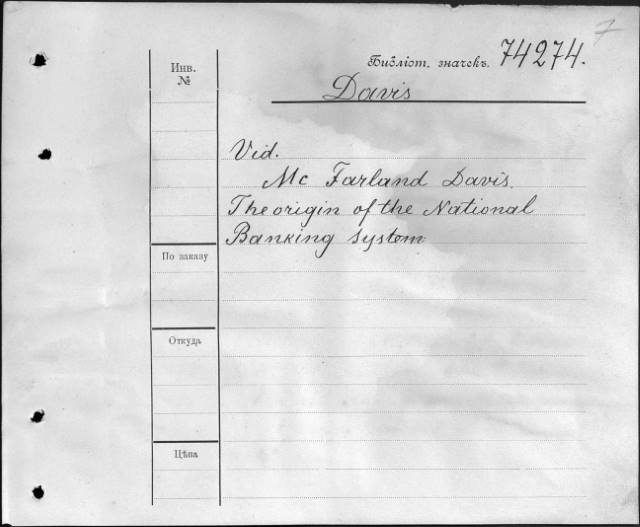 7
Инв.
№
Библіот. значекъ. 74274.
Davis
Vid.
Mc Farland Davis.
The origin of the National
Banking system
По заказу
Откуда
Цѣна